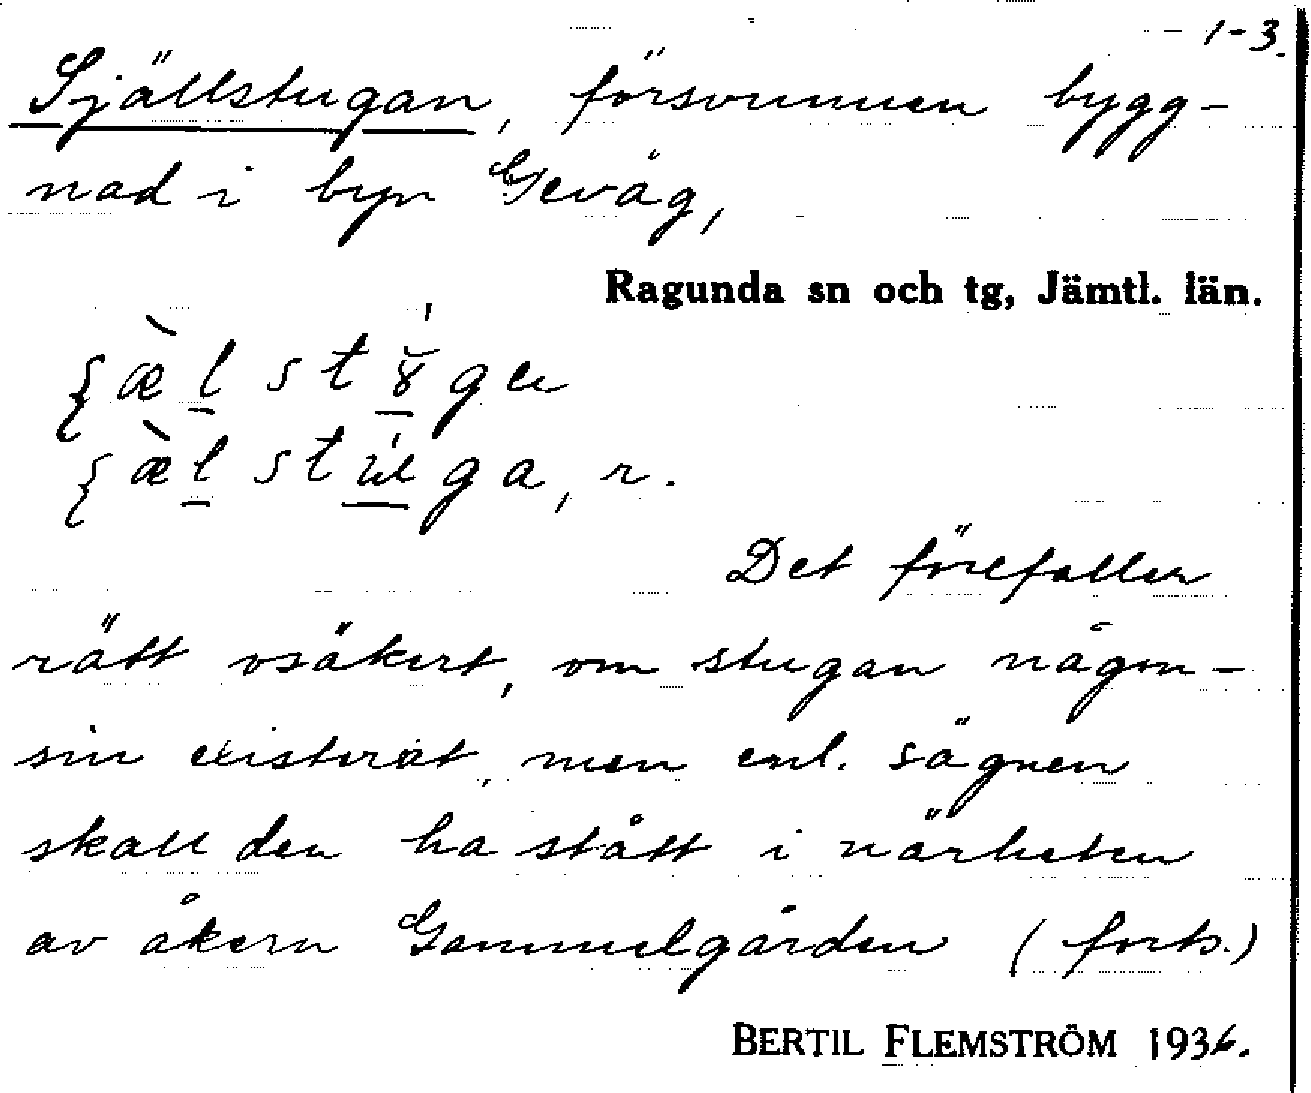 1-3.
Själlstugan, försvunnen bygg-
nad i byn Gevåg,
Ragunda sn och tg, Jämtl. län.
Det förefaller
rätt osäkert, om stugan någon-
sin existerat, men enl. sägnen
skall den ha stått i närheten
av åkern Gammelgården (forts.)
BERTIL FLEMSTRÖM 1936.